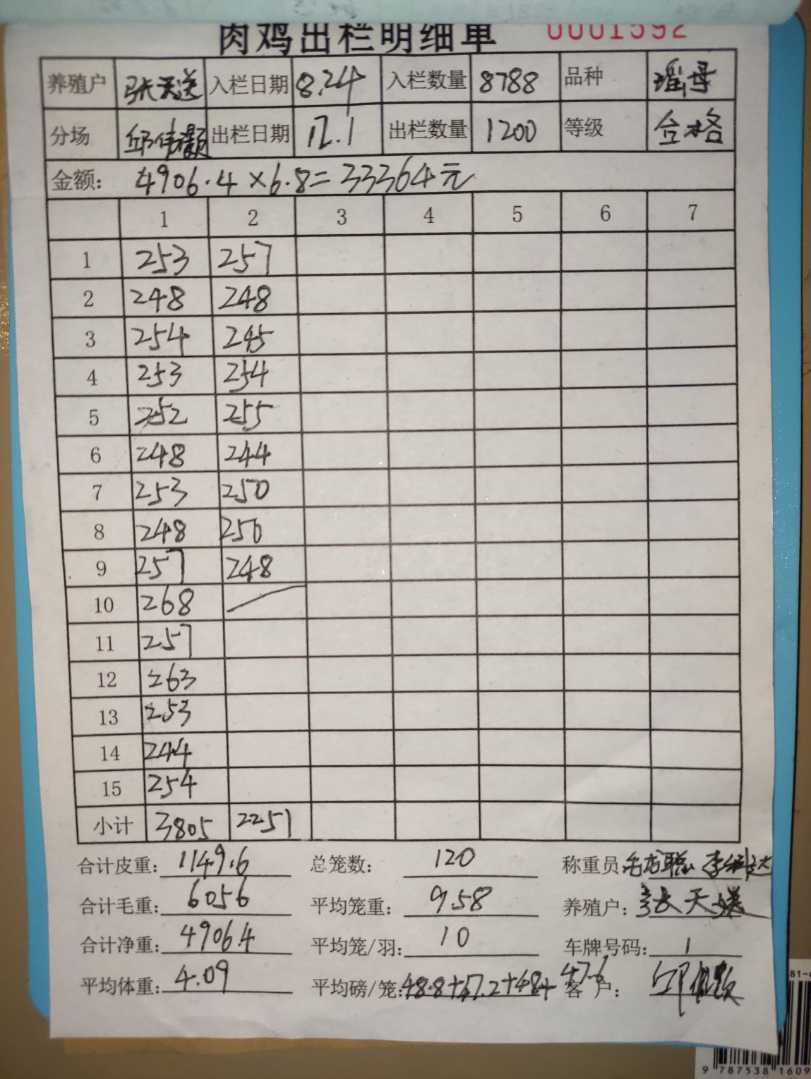 肉鸡出栏明细单 0001592
养殖户 张天送 入栏日期 8.24 入栏数量 8788 品种 瑶母
分场 邱伟灏 出栏日期 12.1 出栏数量 1200 等级 合格
金额: 4906.4×6.8=33364元
1 2 3 4 5 6 7
1 253 257
2 248 248
3 254 245
4 253 254
5 252 255
6 248 244
7 253 250
8 248 250
9 257 248
10 268
11 257
12 263
13 253
14 244
15 254
小计 3805 2251
合计皮重: 1149.6 总笼数: 120 称重员
合计毛重: 6056 平均笼重: 9.58 养殖户: 张天送
合计净重: 4906.4 平均笼/羽: 10 车牌号码: 1
平均体重: 4.09 平均磅/笼: 48.8+47.2+48+47.6 客户:
9 787538 1609